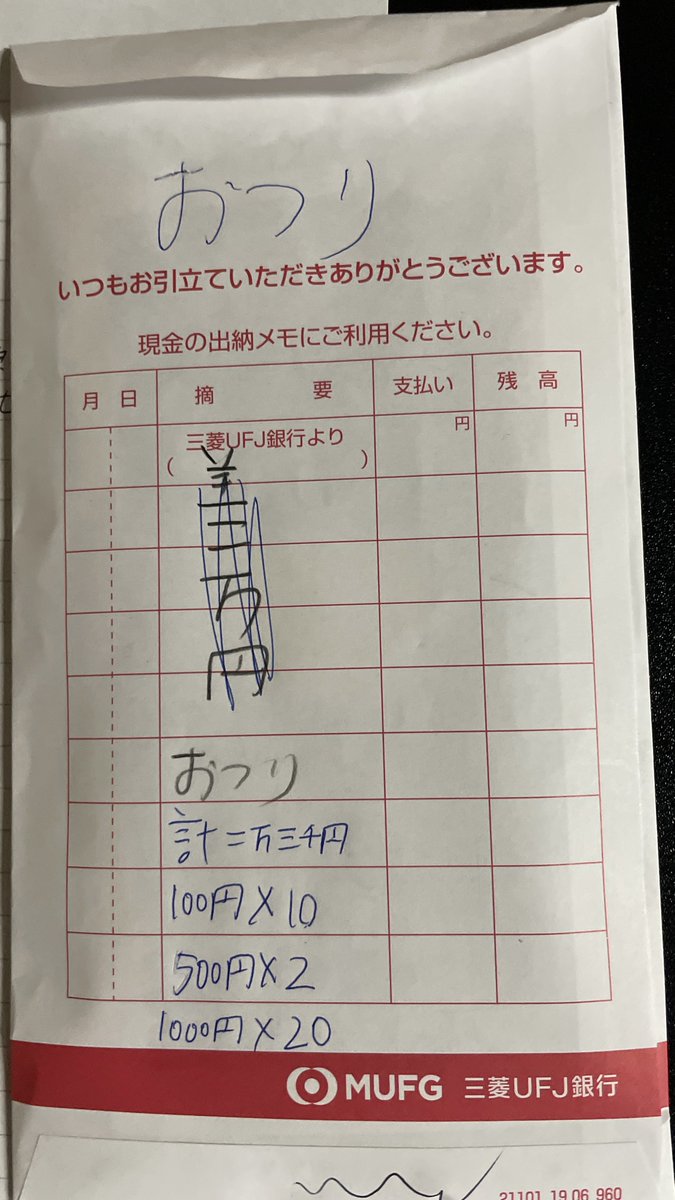 おつり
いつもお引立ていただきありがとうございます。
現金の出納メモにご利用ください。
月 日 摘 要 支払い 残 高
三菱UFJ銀行より 円 円
( )
おつり
計二万三千円
100円×10
500円×2
1000円×20
MUFG 三菱UFJ銀行
21101 19.06 960